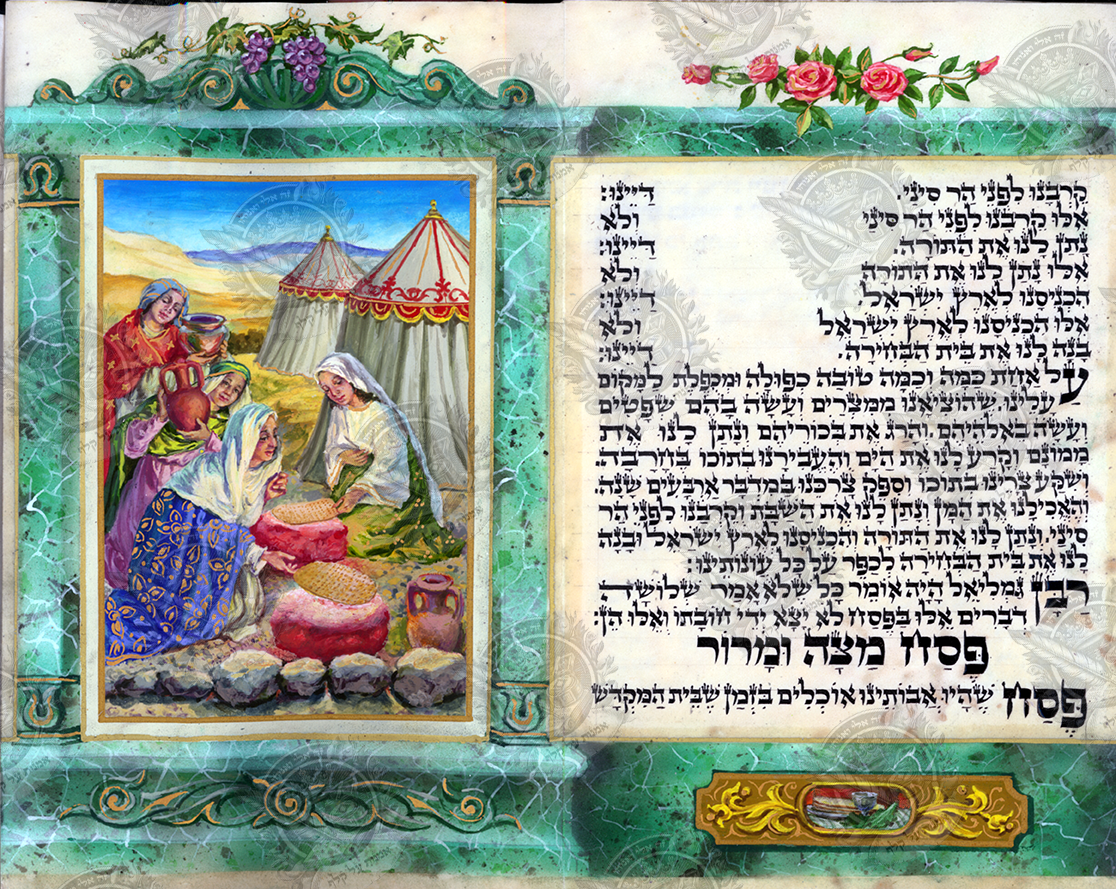 קֵרְבָנוּ לִפְנֵי הַר סִינַי. דַּיֵּינוּ:
אִלּוּ קֵרְבָנוּ לִפְנֵי הַר סִינַי וְלֹא
נָתַן לָנוּ אֶת הַתּוֹרָה. דַּיֵּינוּ:
אִלּוּ נָתַן לָנוּ אֶת הַתּוֹרָה וְלֹא
הִכְנִיסָנוּ לְאֶרֶץ יִשְׂרָאֵל. דַּיֵּינוּ:
אִלּוּ הִכְנִיסָנוּ לְאֶרֶץ יִשְׂרָאֵל וְלֹא
בָּנָה לָנוּ אֶת בֵּית הַבְּחִירָה. דַּיֵּינוּ:
עַל אַחַת כַּמָּה וְכַמָּה טוֹבָה כְפוּלָה וּמְכֻפֶּלֶת לַמָּקוֹם
עָלֵינוּ. שֶׁהוֹצִיאָנוּ מִמִּצְרַיִם וְעָשָׂה בָהֶם שְׁפָטִים
וְעָשָׂה בֵאלֹהֵיהֶם. וְהָרַג אֶת בְּכוֹרֵיהֶם וְנָתַן לָנוּ אֶת
מָמוֹנָם וְקָרַע לָנוּ אֶת הַיָּם וְהֶעֱבִירָנוּ בְתוֹכוֹ בֶּחָרָבָה.
וְשִׁקַּע צָרֵינוּ בְּתוֹכוֹ וְסִפֵּק צָרְכֵּנוּ בַּמִּדְבָּר אַרְבָּעִים שָׁנָה.
וְהֶאֱכִילָנוּ אֶת הַמָּן וְנָתַן לָנוּ אֶת הַשַּׁבָּת וְקֵרְבָנוּ לִפְנֵי הַר
סִינַי. וְנָתַן לָנוּ אֶת הַתּוֹרָה וְהִכְנִיסָנוּ לְאֶרֶץ יִשְׂרָאֵל וּבָנָה
לָנוּ אֶת בֵּית הַבְּחִירָה לְכַפֵּר עַל כָּל עֲוֹנוֹתֵינוּ:
רַבָּן גַּמְלִיאֵל הָיָה אוֹמֵר כָּל שֶׁלֹּא אָמַר שְׁלוֹשָׁה
דְּבָרִים אֵלּוּ בַּפֶּסַח לֹא יָצָא יְדֵי חוֹבָתוֹ וְאֵלּוּ הֵן:
פֶּסַח מַצָּה וּמָרוֹר
פֶּסַח שֶׁהָיוּ אֲבוֹתֵינוּ אוֹכְלִים בִּזְמַן שֶׁבֵּית הַמִּקְדָּשׁ